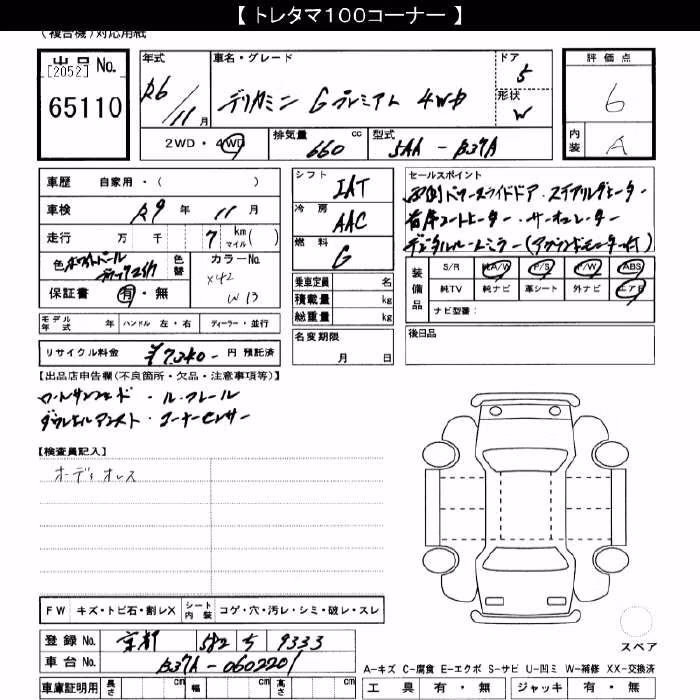 【 トレタマ100コーナー 】
(複合機)対応用紙
出品 No.
[2052]
65110
年式
R6/11 月
車名・グレード
デリカミニ Gプレミアム 4WD
ドア
5
形状
W
評価点
6
内装
A
2WD・4WD
排気量 660 cc
型式 5AA - B37A
車歴 自家用・( )
車検 R9 年 11 月
走行 万 千 7 km マイル ( )
色 ホワイトパール
色替
カラーNo.
X42
W13
保証書 有・無
シフト IAT
冷房 AAC
燃料 G
乗車定員 名
積載量 kg
総重量 kg
セールスポイント
両側パワースライドドア・ステアリングヒーター
前席シートヒーター・サーキュレーター
デジタルルームミラー(アラウンドモニター付)
装備品
S/R 純A/W P/S P/W ABS
純TV 純ナビ 革シート 外ナビ エアB
ナビ型番:
モデル年式 年 ハンドル 左・右 ディーラー・並行
リサイクル料金 ¥7,340- 円 預託済
名変期限
月 日
後日品
【出品店申告欄(不良箇所・欠品・注意事項等)】
ロールサンシェード・ルーフレール
ダウンヒルアシスト・コーナーセンサー
【検査員記入】
オーディオレス
FW キズ・トビ石・割レX
シート内装 コゲ・穴・汚レ・シミ・破レ・スレ
登録 No. 京都 582 う 9333
車台 No. B37A-0602201
車庫証明用 長さ cm 幅 cm 高さ cm
スペア
A-キズ C-腐食 E-エクボ S-サビ U-凹ミ W-補修 XX-交換済
工具 有・無 ジャッキ 有・無